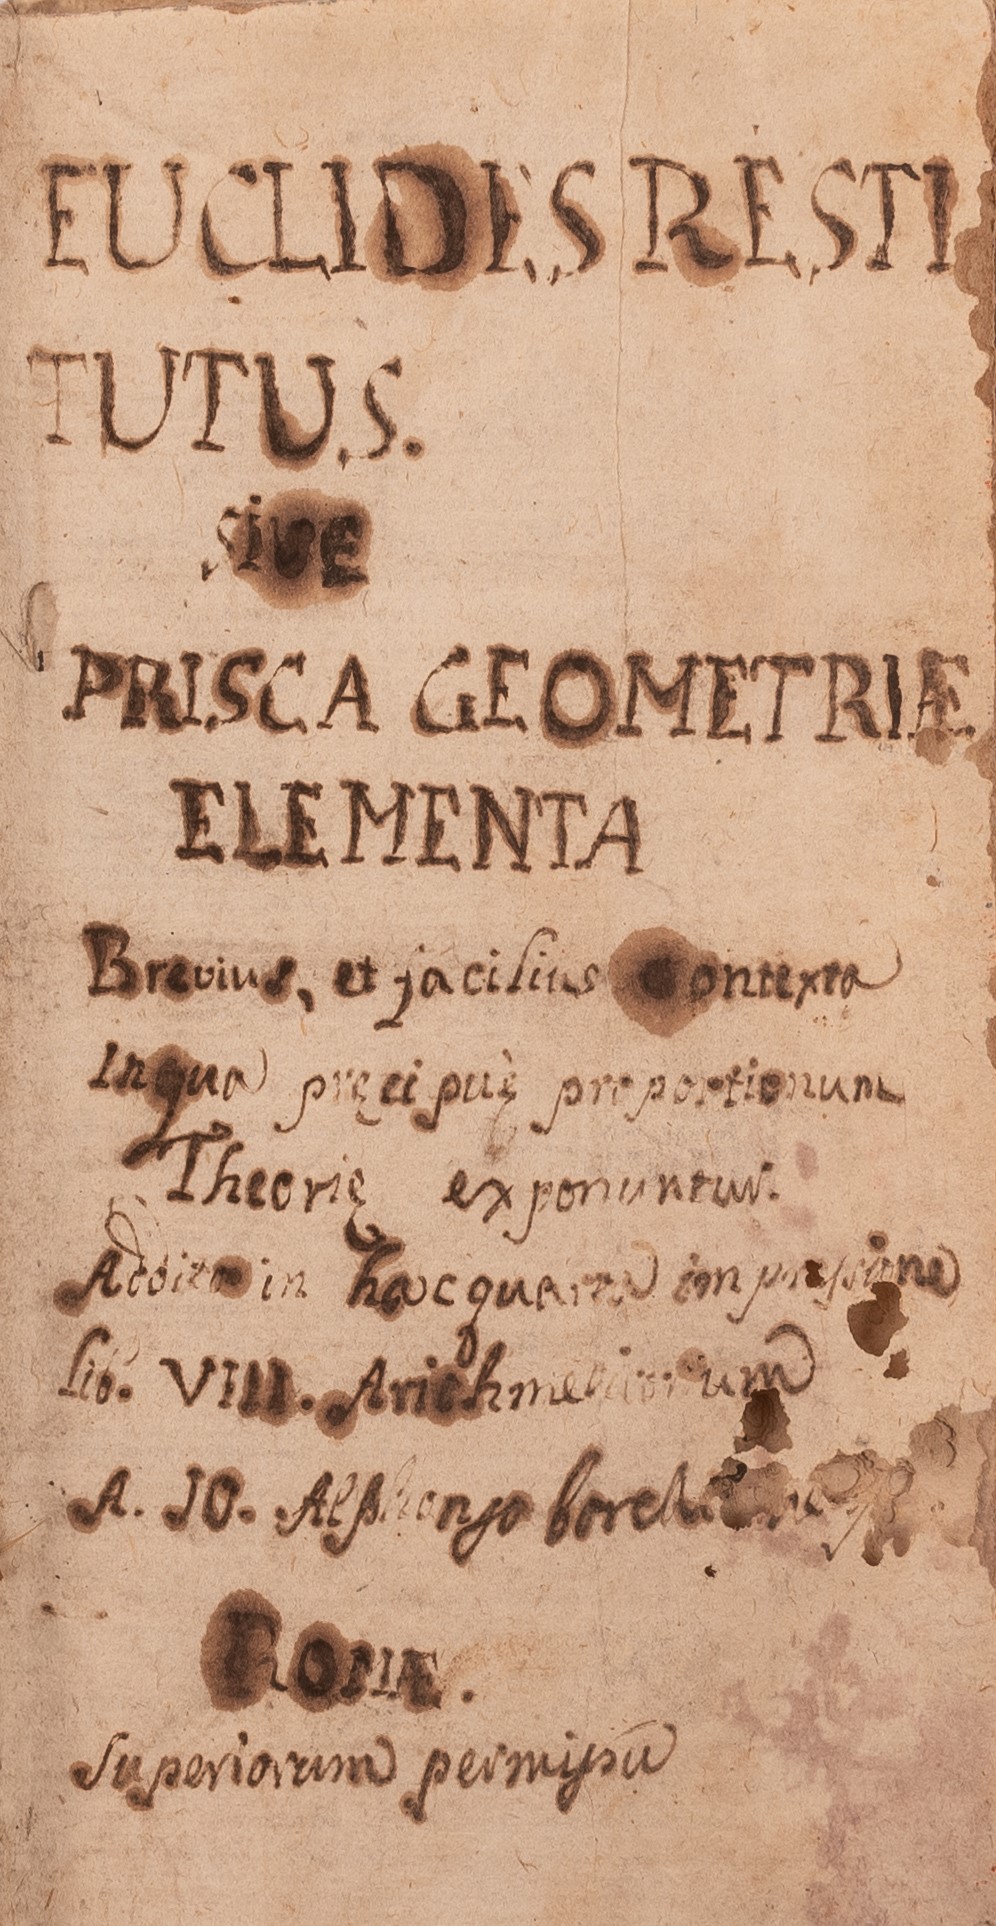 EUCLIDES RESTI
TUTUS.
sive
PRISCA GEOMETRIÆ
ELEMENTA
Brevius, et facilius Contexta
In qua pręcipuè proportionum
Theorię exponuntur.
Addito in hac quarta impressione
lib. VIII. Arithmeticorum
A. IO. Alphonso borellio
ROMÆ.
Superiorum permissu